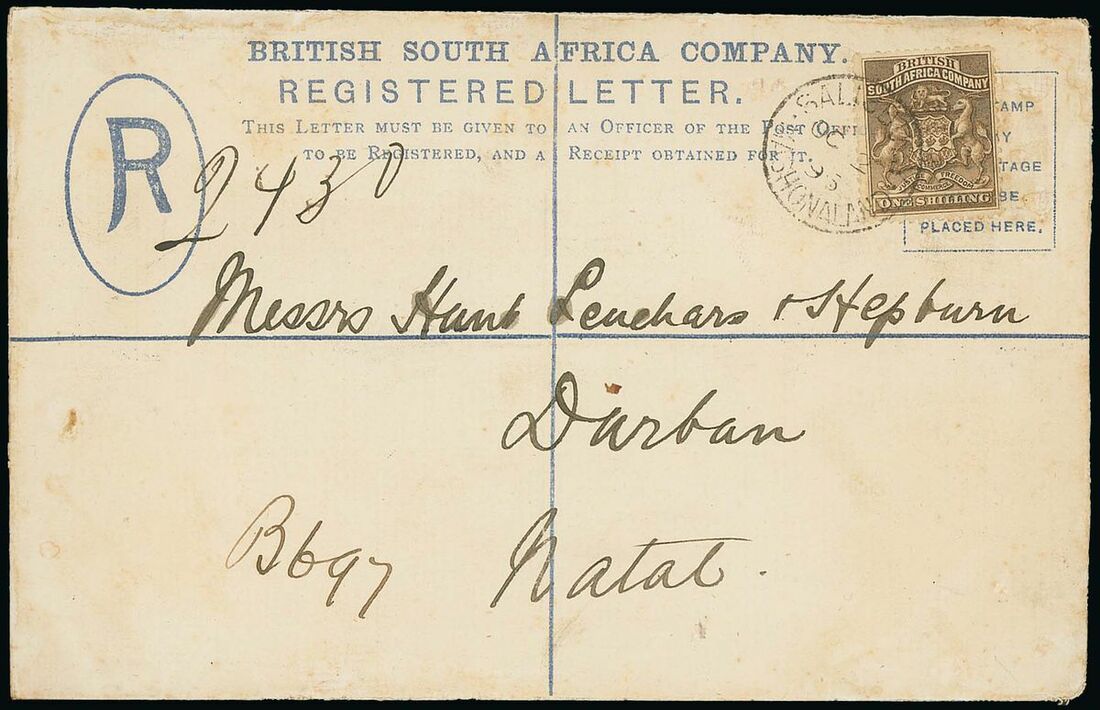 BRITISH SOUTH AFRICA COMPANY.
REGISTERED LETTER.
THIS LETTER MUST BE GIVEN TO AN OFFICER OF THE POST OFFI
TO BE REGISTERED, AND A RECEIPT OBTAINED FOR IT.
R
BRITISH
SOUTH AFRICA COMPANY
JUSTICE FREEDOM
COMMERCE
ONE SHILLING
SAL
OC
95
MASHONALAND
AMP
AY
TAGE
BE
PLACED HERE.
2430
Messrs Hunt Leuchars & Hepburn
Durban
B697
Natal.